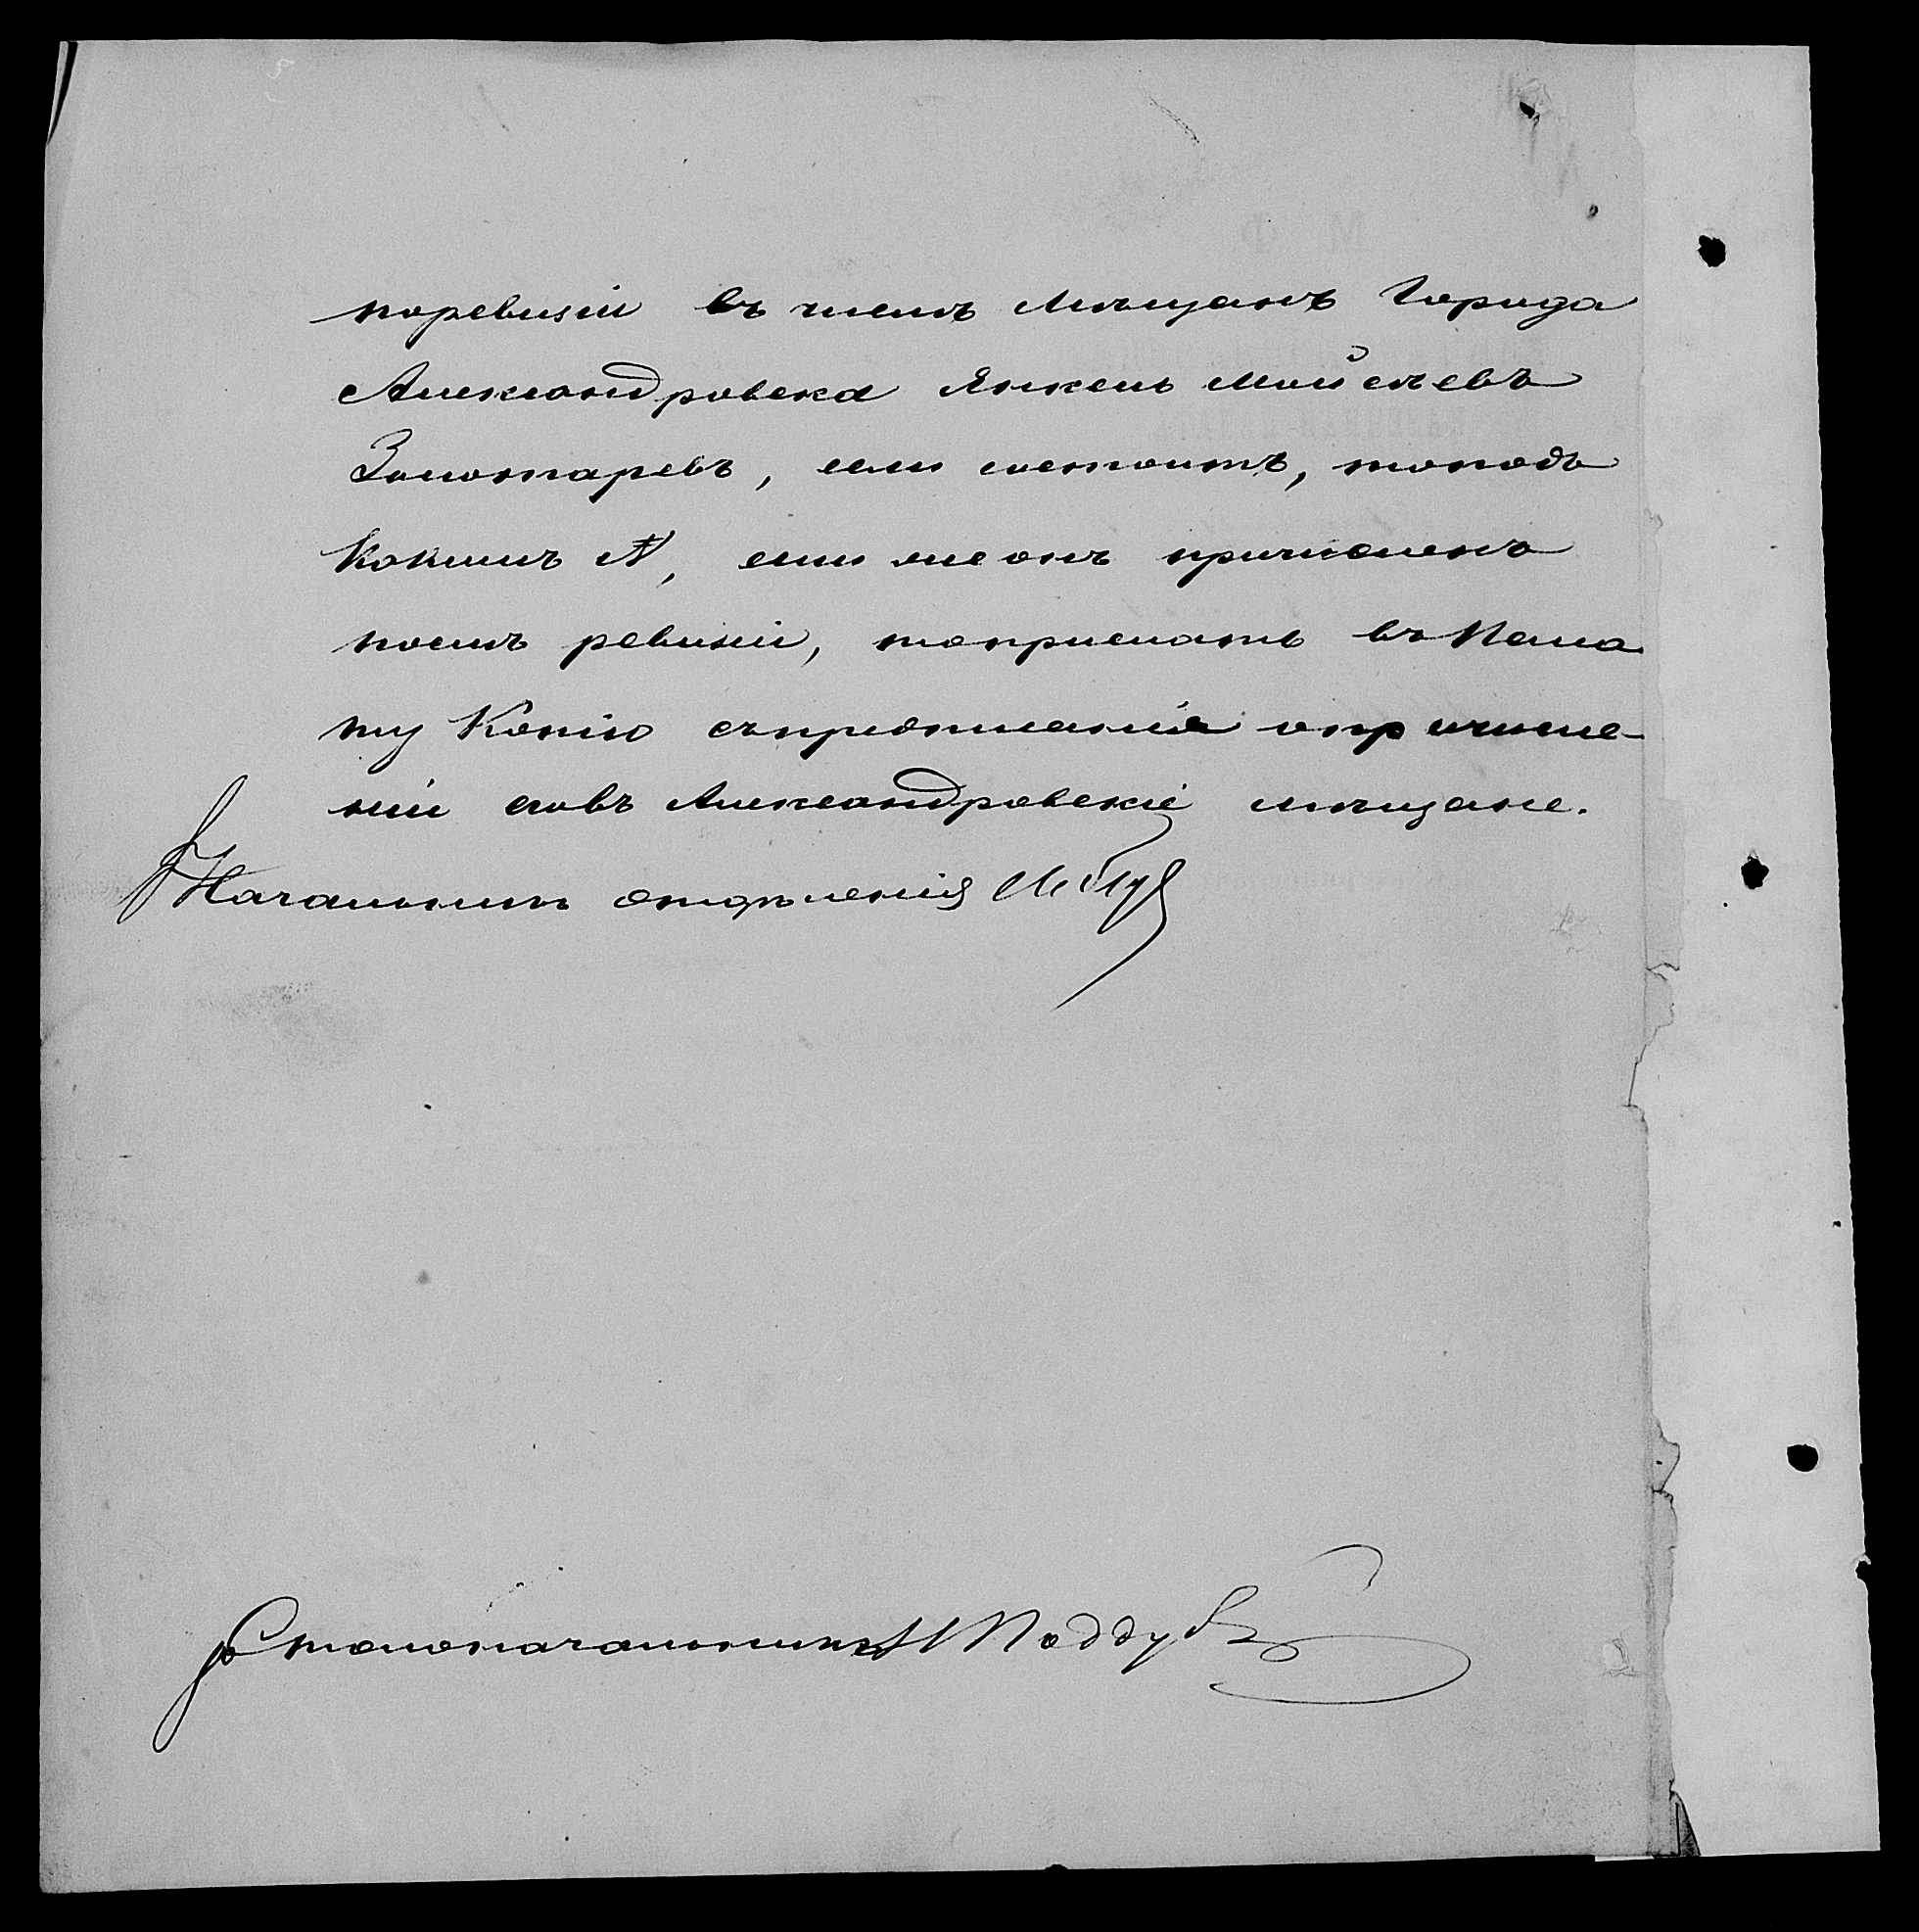 поревизіи въ числѣ Мѣщанъ Города
Александровска Янкель Мойселевъ
Золотаревъ, если состоитъ, топодъ
Какимъ №, если жеонъ причисленъ
послѣ ревизіи, топрислать въ Пала
ту Копію съпредписанія опричисле-
ніи еговъ Александровскіе мѣщане.
Начальникъ отдѣленія
Столоначальникъ